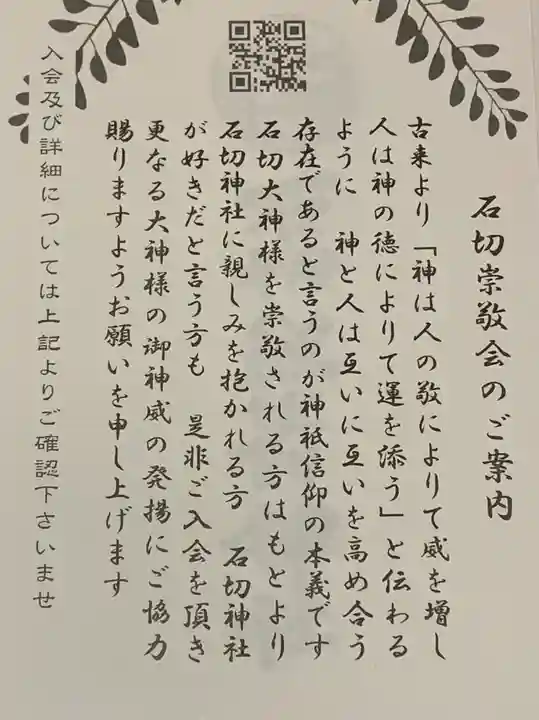 石切崇敬会のご案内
古来より「神は人の敬によりて威を増し
人は神の徳によりて運を添う」と伝わる
ように 神と人は互いに互いを高め合う
存在であると言うのが神祇信仰の本義です
石切大神様を崇敬される方はもとより
石切神社に親しみを抱かれる方 石切神社
が好きだと言う方も 是非ご入会を頂き
更なる大神様の御神威の発揚にご協力
賜りますようお願いを申し上げます
入会及び詳細については上記よりご確認下さいませ